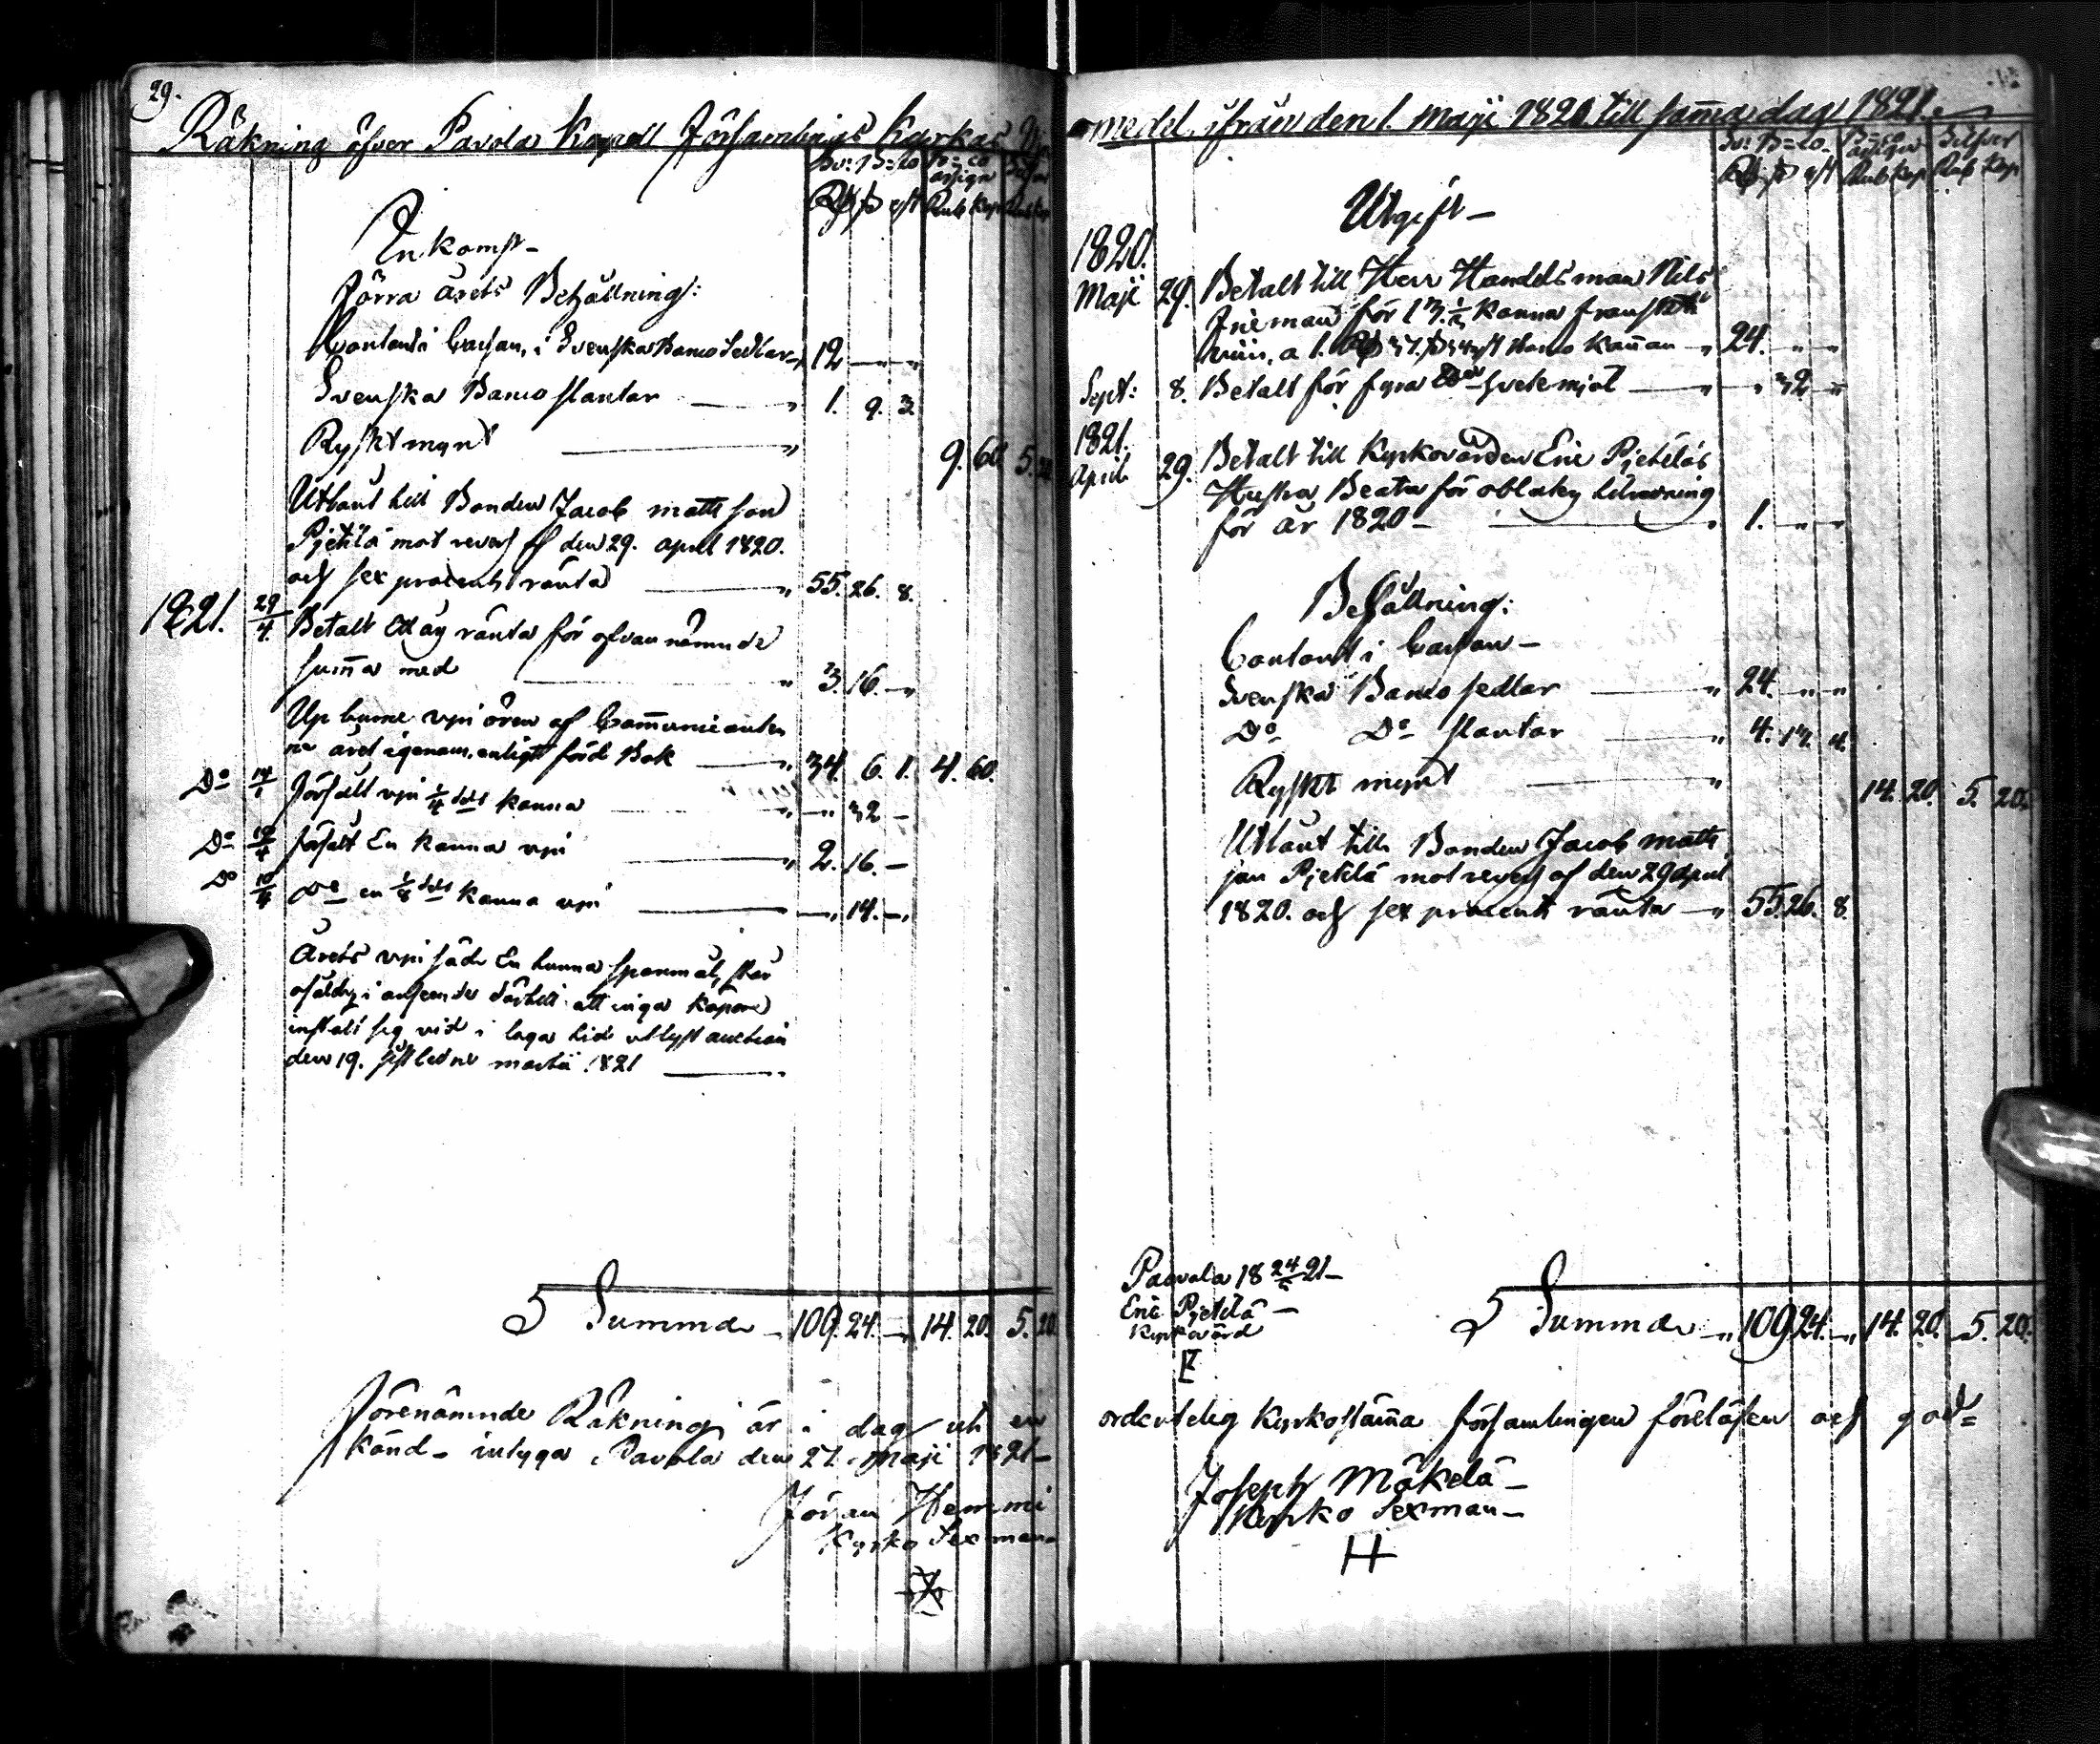 29.
Räkning öfver Pavola Kapell Församlings Kyrkas
Sv: B=co
B=co assign
Rub Kop
Inkomst
Förra årets Behållning:
Contant i Cassan, i Svenska Banco Sedlar 12 — „
Svenska Banco slantar — „ 1. 9. 3
Ryskt mynt — „ 9. 60. 5. 20
Utlånt till Bonden Jacob Matts son
Pjetilä mot revers af den 29. april 1820.
och sex procents ränta — „ 55. 26. 8.
1821. 29/4. Betalt ett års ränta för ofvannämnde
summa med — „ 3. 16. — „
Upburne vin ören af Communicanter
ne året igenom, enligt förd Bok — „ 34. 6. 1. 4. 60.
Do Försålt vin 1/4 dels kanna — „ — „ 32 —
Do försålt En kanna vin — „ 2. 16. —
Do Do en 1/8 dels kanna vin — „ 14. — „
Årets vin säd En tunna spanmål, står
osåld, i anseende dertill att inga köpare
instält sig vid i laga tid utlyst auction
den 19. sistledne martii 1821 —
Summa — 109. 24. — „ 14. 20. 5. 20.
Förenämnde Räkning är i dag uti en
känd — intygar, Pavola den 27. Maji 1821 —
Jöran Hemmi
Kyrko Sexman
medel, ifrån den 1. Maji 1820 till samma dag 1821.
Sv: B=co
B=co assign
Silfver
Rub Kop Rub Kop
Utgift —
1820.
Maji 29. Betalt till Herr Handelsman Nils
Frieman för 13 1/2 kanna franskt
viin, a 1. Banco kannan — „ 24. „ — „
Sept: 8. Betalt för fyra hvetemjöl — „ — „ 32 — „
1821.
April 29. Betalt till Kyrkovärden Eric Pjetiläs
Hustru Beata för oblaters tilredning
för år 1820 — „ 1. „ — „
Behållning:
Contant i Cassan —
Svenska Banco sedlar — „ 24. „ — „
Do Do slantar — „ 4. 14. 4.
Ryskt mynt — „ 14. 20. 5. 20.
Utlånt till Bonden Jacob Matts
son Pjetilä mot revers af den 29 april
1820. och sex procents ränta — „ 55. 26. 8.
Paavola 18 24/5 21 —
Eric Pjetilä —
Kyrkovärd
Summa — „ 109. 24. — „ 14. 20. 5. 20.
ordentelig Kyrkostämma församlingen föreläsen och god=
Joseph Mäkelä —
Kyrko Sexman —
H